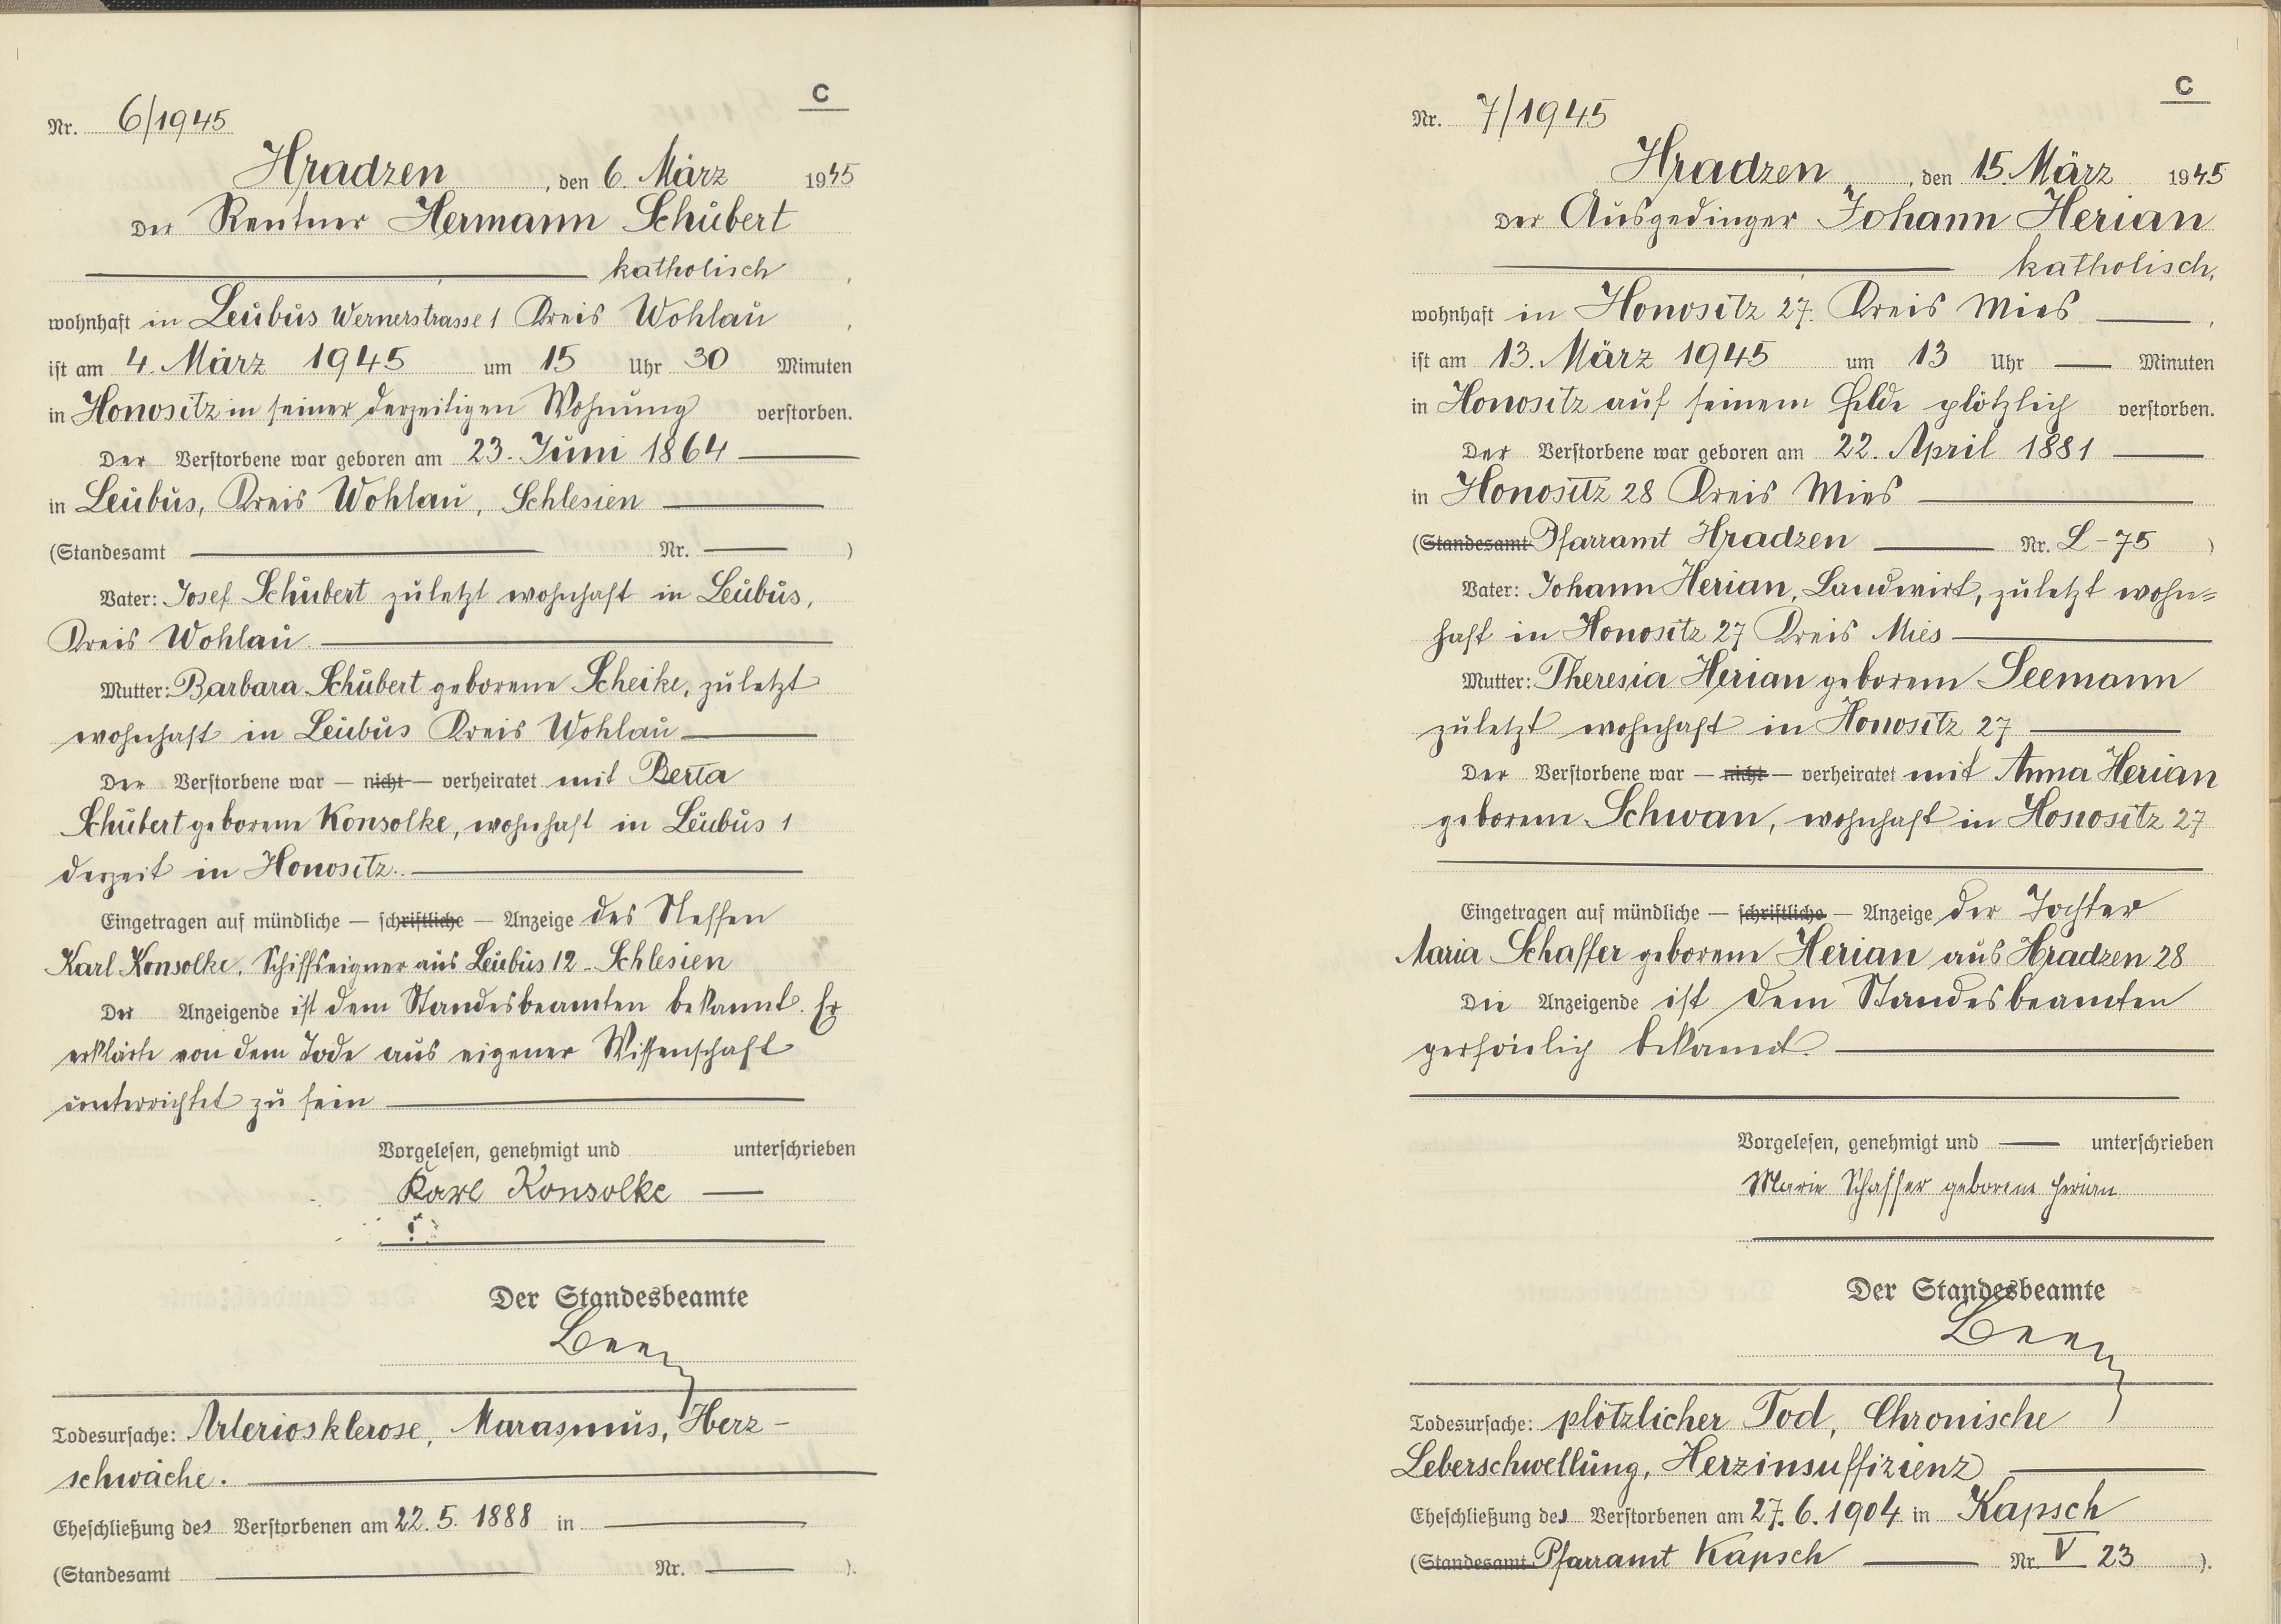 C
Nr. 6/1945
Hradzen, den 6. März 1945
Der Rentner Hermann Schubert
katholisch,
wohnhaft in Leubus Wernerstrasse 1 Kreis Wohlau,
ist am 4. März 1945 um 15 Uhr 30 Minuten
in Honositz in seiner derzeitigen Wohnung verstorben.
Der Verstorbene war geboren am 23. Juni 1864
in Leubus, Kreis Wohlau, Schlesien
(Standesamt Nr. )
Vater: Josef Schubert zuletzt wohnhaft in Leubus,
Kreis Wohlau
Mutter: Barbara Schubert geborene Scheike, zuletzt
wohnhaft in Leubus Kreis Wohlau
Der Verstorbene war — nicht — verheiratet mit Berta
Schubert geborene Konsolke, wohnhaft in Leubus 1
derzeit in Honositz.
Eingetragen auf mündliche — schriftliche — Anzeige des Neffen
Karl Konsolke, Schiffseigner aus Leubus 12 - Schlesien
Der Anzeigende ist dem Standesbeamten bekannt. Er
erklärte von dem Tode aus eigener Wissenschaft
unterrichtet zu sein
Vorgelesen, genehmigt und unterschrieben
Karl Konsolke
Der Standesbeamte
Todesursache: Arteriosklerose, Marasmus, Herz-
schwäche.
Eheschließung des Verstorbenen am 22. 5. 1888 in
(Standesamt Nr. ).
C
Nr. 7/1945
Hradzen, den 15. März 1945
Der Ausgedinger Johann Herian
katholisch,
wohnhaft in Honositz 27. Kreis Mies,
ist am 13. März 1945 um 13 Uhr — Minuten
in Honositz auf seinem Felde plötzlich verstorben.
Der Verstorbene war geboren am 22. April 1881
in Honositz 28 Kreis Mies
(Standesamt Pfarramt Hradzen Nr. L-75 )
Vater: Johann Herian, Landwirt, zuletzt wohn=
haft in Honositz 27 Kreis Mies
Mutter: Theresia Herian geborene Seemann
zuletzt wohnhaft in Honositz 27
Der Verstorbene war — nicht — verheiratet mit Anna Herian
geborene Schwan, wohnhaft in Honositz 27
Eingetragen auf mündliche — schriftliche — Anzeige der Tochter
Maria Schaffer geborene Herian aus Hradzen 28
Die Anzeigende ist dem Standesbeamten
persönlich bekannt.
Vorgelesen, genehmigt und — unterschrieben
Marie Schaffer geborene Herian
Der Standesbeamte
Todesursache: plötzlicher Tod, Chronische
Leberschwellung, Herzinsuffizienz
Eheschließung des Verstorbenen am 27. 6. 1904 in Kapsch
(Standesamt Pfarramt Kapsch Nr. V 23 ).